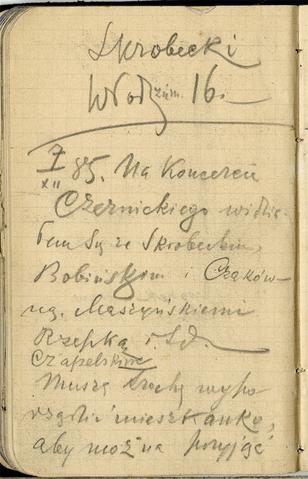 Skrobecki
Włodzim. 16.
I 85. Na Koncercie
XII
Czernickiego widzia-
łem Się ze Skrobeckim,
Bobińskim i Cząków-
ną. Maszyńskiemi
Rzepką i t.d.
Czapelskim
Muszę trochę wypo
rządzić mieszkanko,
aby można przyjąć